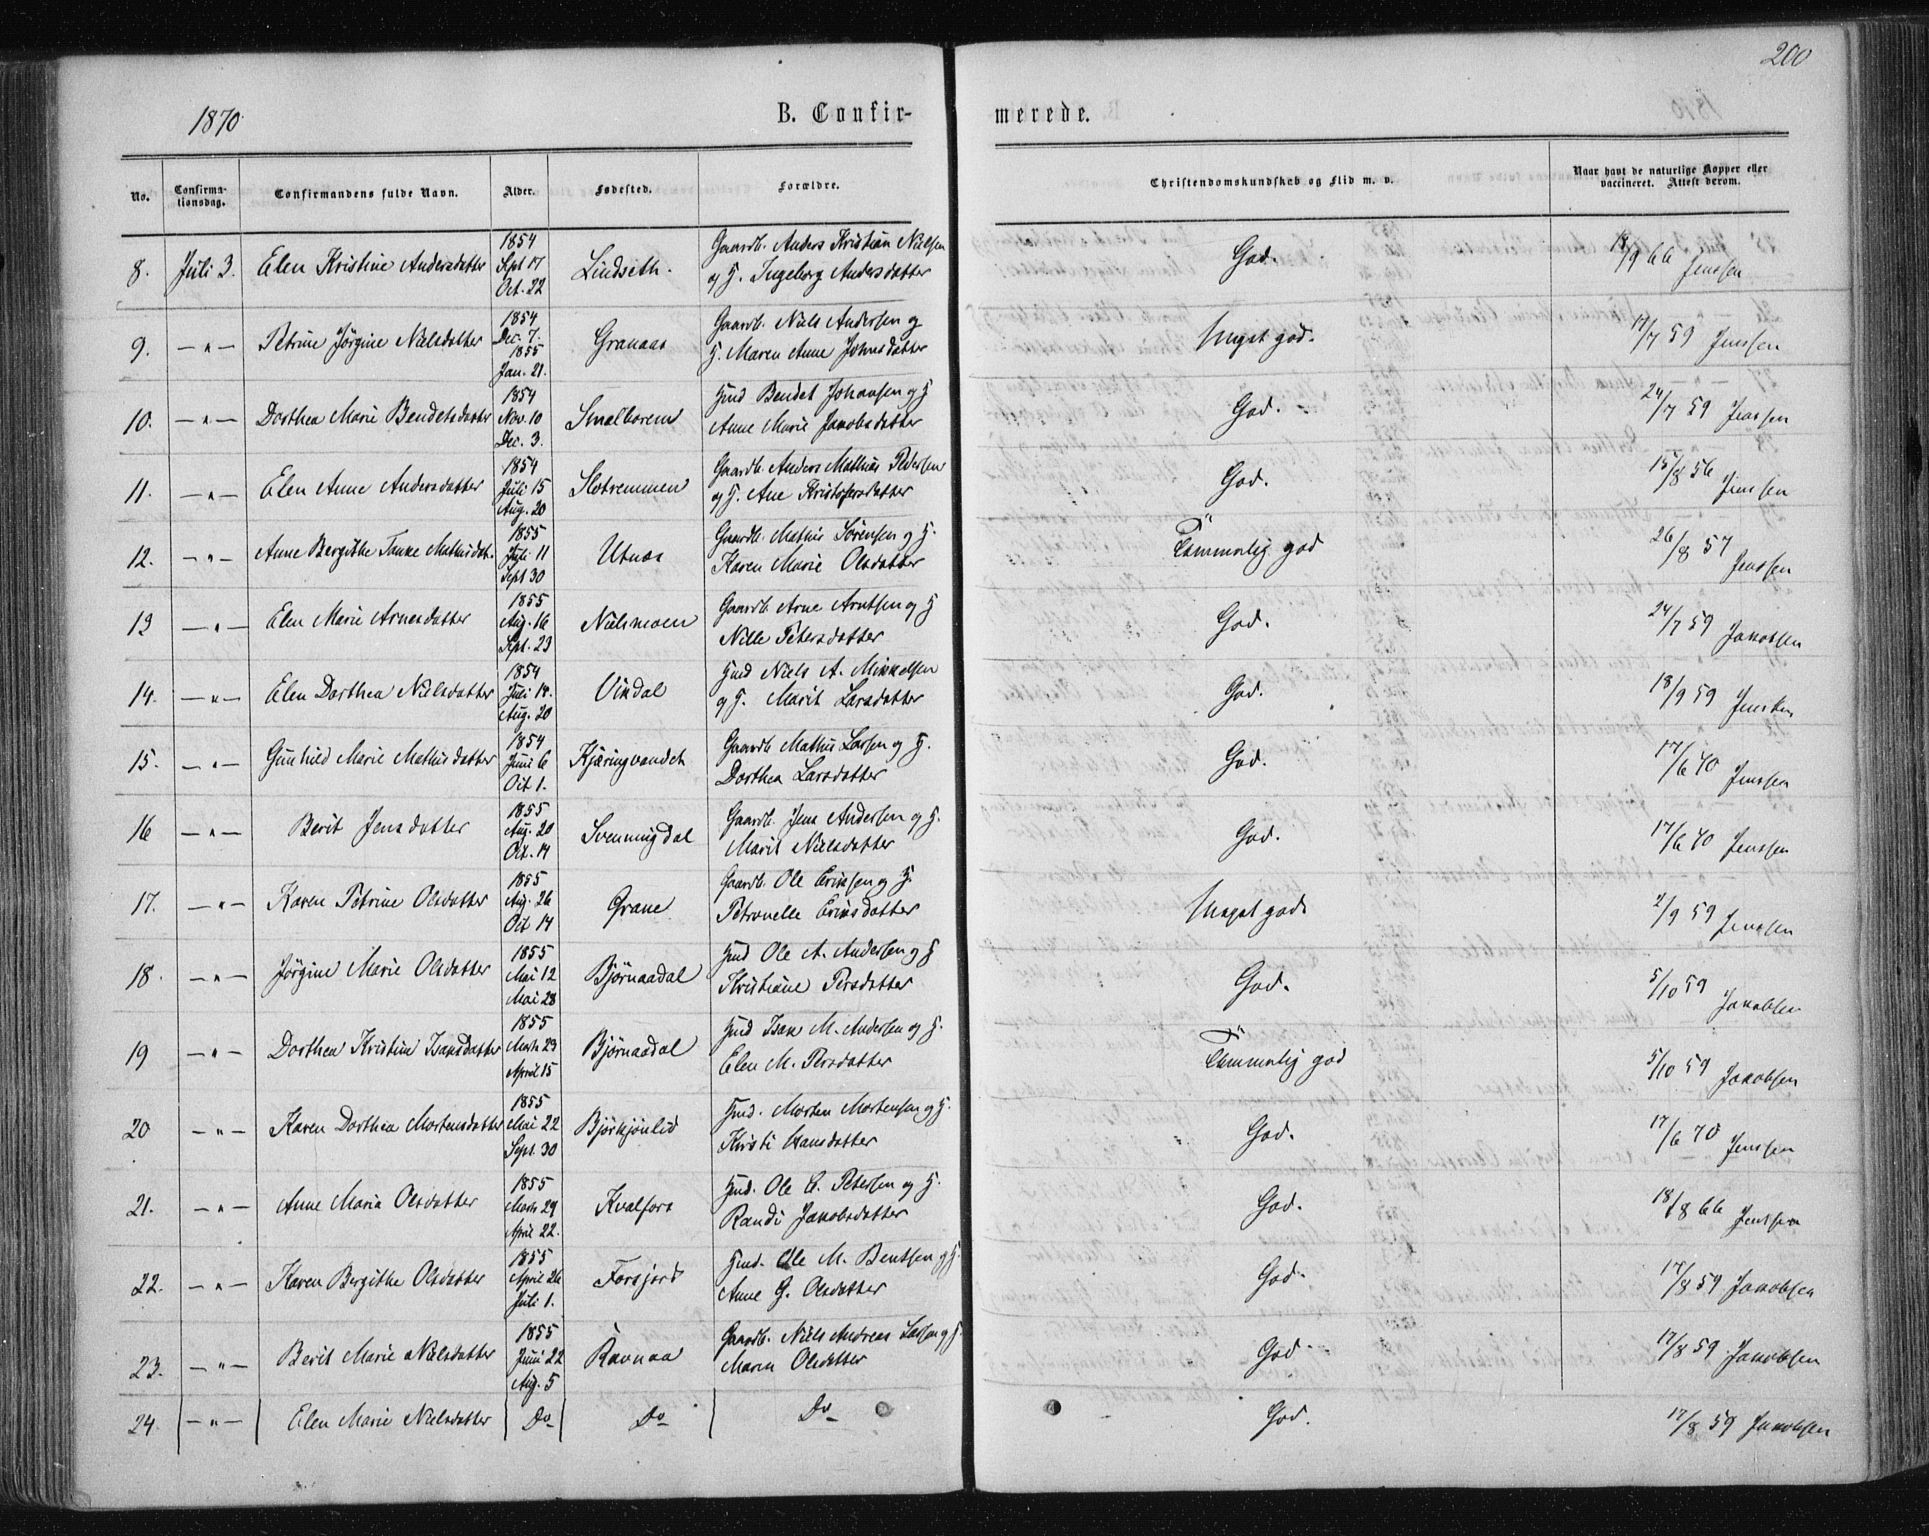 200
1870
B. Confirmerede.
No. Confirmationsdag. Confirmandens fulde Navn. Alder. Fødested. Forældre. Christendomskundskab og Flid m. v. Naar havt de naturlige Kopper eller vaccineret. Attest derom.
8. Juli 3. Elen Kristine Andersdatter 1854 Sept 17 Oct. 22 Lindseth. Gaardb. Anders Kristian Nielsen og H. Ingeborg Andersdatter God. 18/9 66 Jenssen
9. — " — Petrine Jørgine Nielsdatter 1854 Dec. 7. 1855 Jan. 21. Granaas Gaardb. Niels Andersen og H. Maren Anne Johnsdatter Meget god. 17/7 59 Jenssen
10. — " — Dorthea Marie Bendetsdatter 1854 Nov. 10 Dec. 3. Smalborem Hmd Bendet Johansen og H Anne Marie Jakobsdatter God. 24/7 59 Jenssen
11. — " — Elen Anne Andersdatter 1854 Juli 15 Aug. 20 Slotremmen Gaardb. Anders Mathias Pedersen og H. Ane Kristofersdatter God. 15/8 56 Jenssen
12. — " — Anne Bergithe Tanke Mathisdat. 1855 Juli 11 Sept 30 Utnæs Gaardb. Mathis Sørensen og H. Karen Marie Olsdatter Temmelig god 26/8 57 Jenssen
13 — " — Elen Marie Arnesdatter 1855 Aug. 16 Sept. 23 Nielsmoen Gaardb. Arne Arntsen og H Nille Petersdatter God. 24/7 59 Jakobsen
14. — " — Elen Dorthea Nielsdatter 1854 Juli 18. Aug. 20 Vindal Hmd Niels A. Mikkelsen og H. Marit Larsdatter God. 18/9 59 Jenssen
15. — " — Gunhild Marie Mathisdatter 1854 Juni 6 Oct 1. Kjæringvandet Gaardb Mathis Larsen og H. Dorthea Larsdatter God. 17/6 70 Jenssen
16 — " — Berit Jensdatter 1855 Aug. 20 Oct. 14 Svenningdal Gaardb. Jens Andersen og H. Marit Nielsdatter God. 17/6 70 Jenssen
17. — " — Karen Petrine Olsdatter 1855 Aug. 26 Oct 14 Grane Gaardb. Ole Eriksen og H. Petronelle Eriksdatter Meget god. 2/9 59 Jenssen
18. — " — Jørgine Marie Olsdatter 1855 Mai 12 Mai 28 Bjørnaadal Hmd Ole A. Andersen og H Kristiane Persdatter God. 5/10 59 Jakobsen
19 — " — Dorthea Kristine Isaksdatter 1855 Marts 23 April 15 Bjørnaadal Hmd Isak M. Andersen og H. Elen M. Persdatter Temmelig god 5/10 59 Jakobsen
20 — " — Karen Dorthea Mortensdatter 1855 Mai 22 Sept. 30 Bjørkjønlid Hmd. Morten Mortensen og H. Kirsti Hansdatter God. 17/6 70 Jenssen
21. — " — Anne Maria Olsdatter 1855 Marts 29 April 22. Kvalfors Hmd. Ole E. Petersen og H. Randi Jakobsdatter God. 18/8 66 Jenssen
22. — " — Karen Bergithe Olsdatter 1855 April 26 Juli 1. Forsjord Hmd. Ole M. Bentsen og H. Anne G. Olsdatter God. 17/8 59 Jakobsen
23. — " — Berit Marie Nielsdatter 1855 Juni 22 Aug. 5 Ravnaa Gaardb. Niels Andreas Larsen og H. Maren Olsdatter God 17/8 59 Jakobsen
24. — " — Elen Marie Nielsdatter Do Do Do God. 17/8 59 Jakobsen